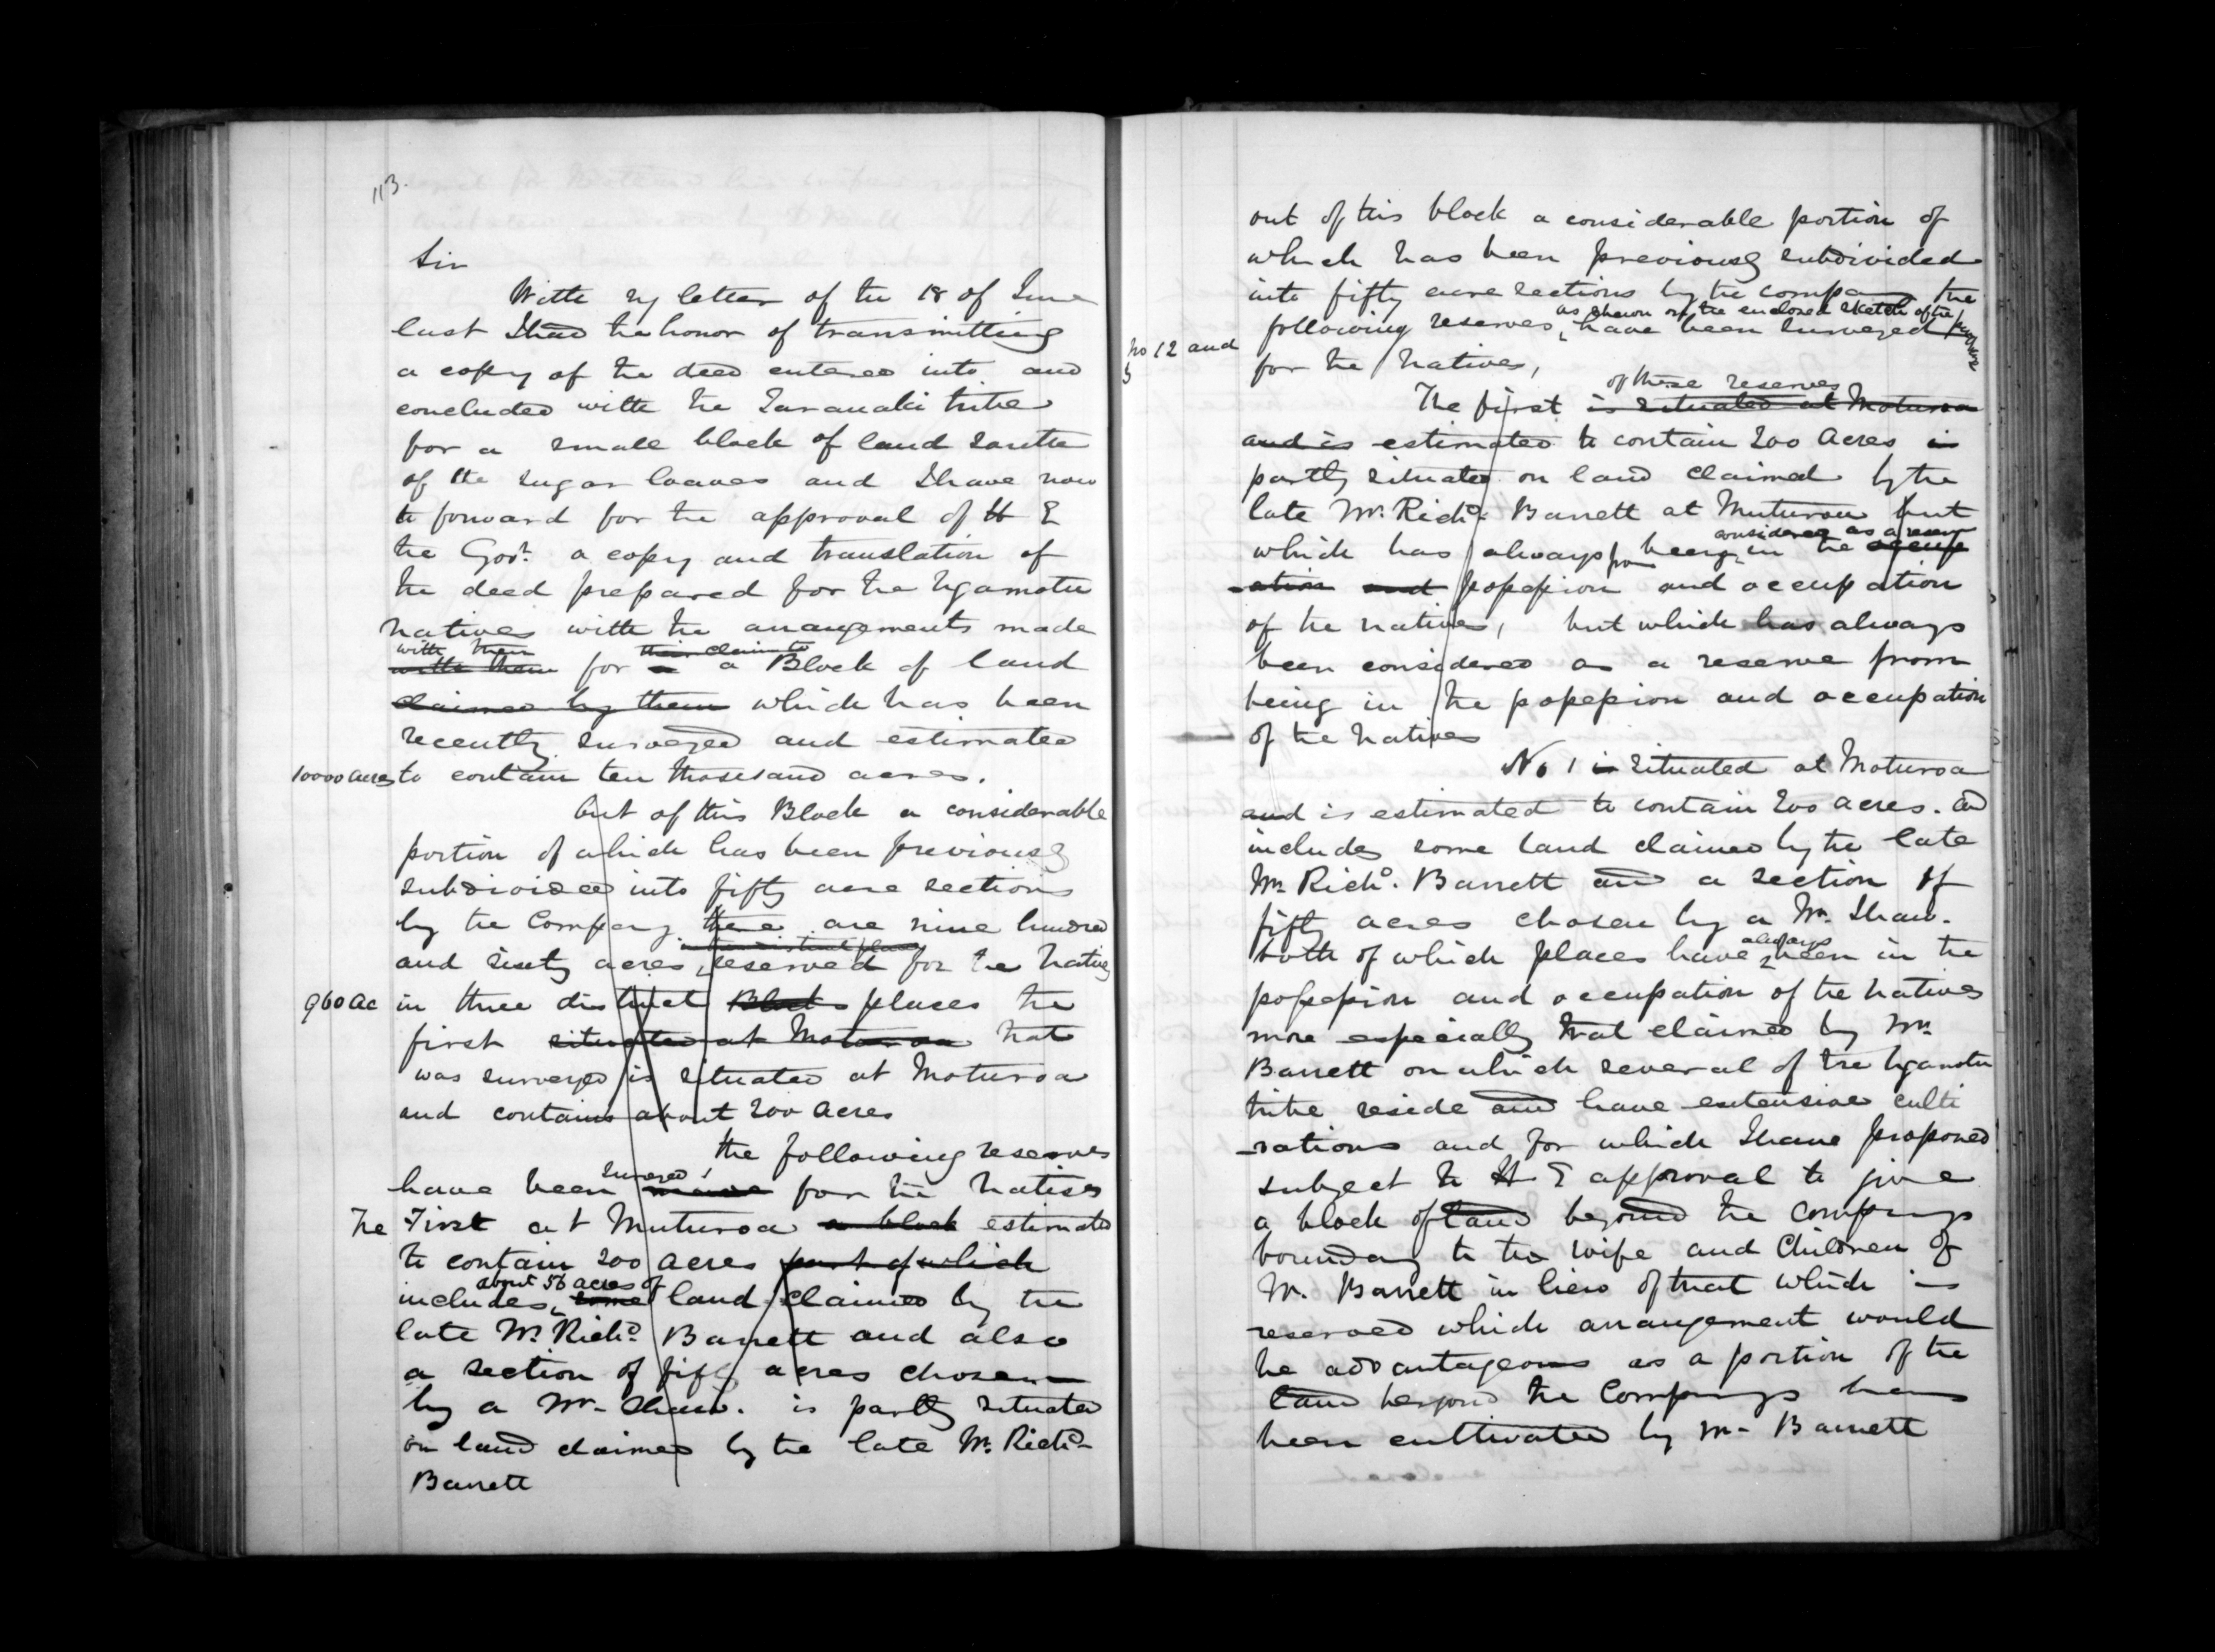 113.
Sir
With my letter of the 18 of June
last I had the honor of transmitting
a copy of the deed entered into and
concluded with the Taranaki tribe
for a small block of land south
of the sugar loaves and I have now
to forward for the approval of H E
the Govr. a copy and translation of
the deed prepared for the Ngamotu
natives with the arangements made
with them their claim to
with them for a a Block of land
claimed by them which has been
recently surveyed and estimated
10000 acres to contain ten thousand acres.
Out of this Block a considerable
portion of which has been previously
subdivided into fifty acre sections
by the Company there are nine hundred
and sixty acres reserved for the Natives
960 Ac in three distinct Blocks places the
first situated at Moturoa that
was surveyed is situated at Moturoa
and contains about 200 Acres
the following reserves
surveyed
have been made for the Natives
The First at Muturoa a block estimated
to contain 200 Acres part of which
about 50 acres of
includes some land claimed by the
late Mr. Richd. Barrett and also
a section of fifty acres chosen
by a Mr. Shaw. is partly situated
on land claimed by the late Mr. Richd.
Barrett
out of this block a considerable portion of
which has been previously subdivided
into fifty acre sections by the company the
as shewn on the enclosed sketch of the purchase
following reserves, have been surveyed
no 1 2 and 3
for the Natives,
of these reserves
The first is situated at Moturoa
and is estimated to contain 200 Acres is
partly situated on land claimed by the
late Mr. Richd. Barrett at Muturoa but
considered as a reserve
which has always from being in the occup
-ation and possession and occupation
of the natives, but which has always
been considered as a reserve from
being in the possession and occupation
of the Natives
No 1 is situated at Moturoa
and is estimated to contain 200 acres. and
includes some land claimed by the late
Mr. Richd. Barrett and a section of
fifty acres chosen by a Mr. Shaw.
always
both of which places have been in the
possession and occupation of the natives
more especially that claimed by Mr.
Barrett on which several of the Ngamotu
tribe reside and have extensive culti
-vations and for which I have proposed
subject to H E approval to give
a block of land beyond the Companys
boundary to the wife and Children of
Mr. Barrett in lieu of that which is
reserved which arangement would
be advantageous as a portion of the
land beyond the Companys has
been cultivated by Mr. Barrett